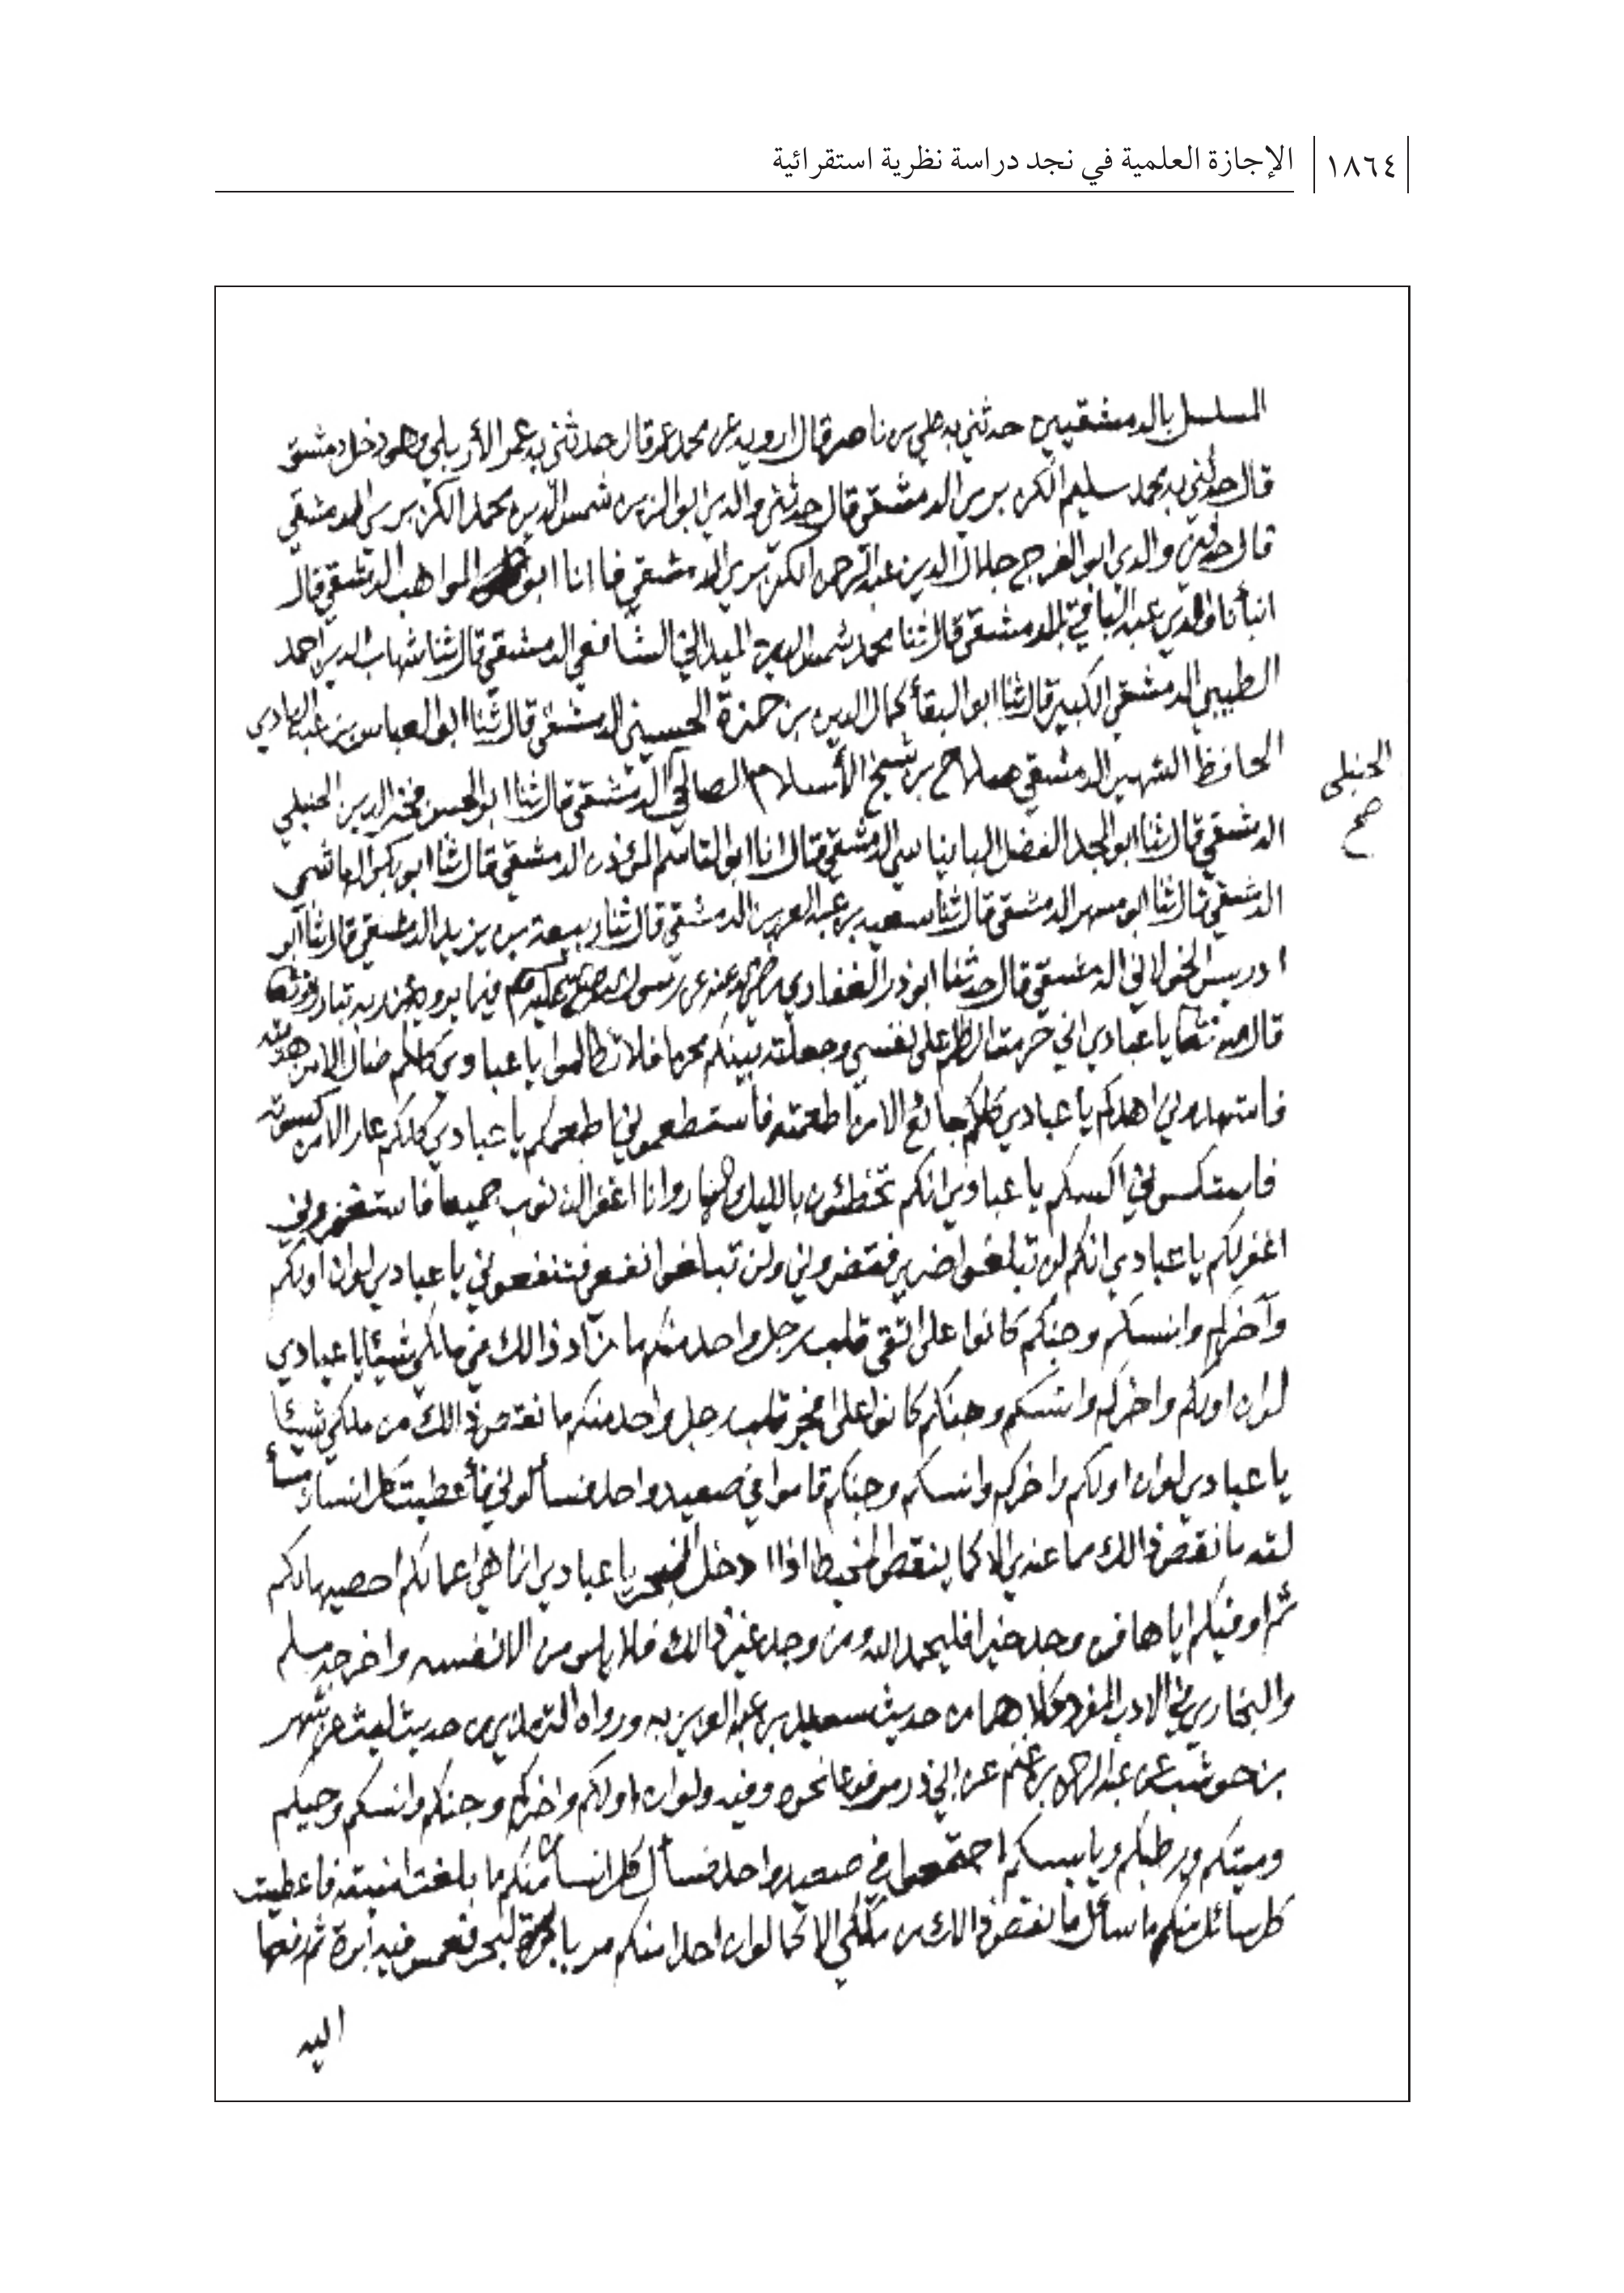 ١٨٦٤ الإجازة العلمية في نجد دراسة نظرية استقرائية
المسلسل بالدمشقيين حدثني به علي بن ناصر قال ارويه عن محمد عمر قال حدثني به عمر الأربلي وهو دخل دمشق
قال حدثني به محمد سليم الكزبري الدمشقي قال حدثني والدي ابو الزين شمس الدين محمد الكزبري الدمشقي
قال حدثني والدي ابو الفرج جلال الدين عبد الرحمن الكزبري الدمشقي انا ابو المواهب الدمشقي قال
انبأنا والدي عبد الباقي الدمشقي قال ثنا محمد شمس الدين الميداني الشافعي الدمشقي قال ثنا شهاب الدين احمد
الطيبي الدمشقي الكبير قال ثنا ابو البقأ كمال الدين بن حمزة الحسيني الدمشقي قال ثنا ابو العباس بن عبد الهادي
الحنبلي
صح
الحافظ الشهير الدمشقي صلاح بن شيخ الأسلام الصالحي الدمشقي قال ثنا ابو الحسن فخر الدين الحنبلي
الدمشقي قال ثنا ابو المجد الفضل البانياسي الدمشقي قال انا ابو القاسم المؤذن الدمشقي قال ثنا ابو بكر الهاشمي
الدمشقي قال ثنا ابو مسهر الدمشقي قال ثنا سعيد بن عبد العزيز الدمشقي قال ثنا ربيعة بن يزيد الدمشقي قال ثنا أبو
ادريس الخولاني الدمشقي قال حدثنا ابو ذر الغفاري رضي الله عنه عن رسول الله صلى الله عليه وسلم فيما يرويه عن ربه تبارك وتعا
قال الله تعا يا عبادي اني حرمت الظلم على نفسي وجعلته بينكم محرما فلا تظالموا يا عبادي كلكم ضال الا من هديته
فاستهدوني اهدكم يا عبادي كلكم جائع الا من اطعمته فاستطعموني اطعمكم يا عبادي كلكم عار الا من كسوته
فاستكسوني اكسكم يا عبادي انكم تخطئون بالليل والنهار وانا اغفر الذنوب جميعا فاستغفروني
اغفر لكم يا عبادي انكم لن تبلغوا ضري فتضروني ولن تبلغوا نفعي فتنفعوني يا عبادي لو ان اولكم
وآخركم وانسكم وجنكم كانوا على اتقى قلب رجل واحد منكم ما زاد ذالك في ملكي شيئا يا عبادي
لو ان اولكم واخركم وانسكم وجنكم كانوا على افجر قلب رجل واحد منكم ما نقص ذالك من ملكي شيئا
يا عبادي لو ان اولكم واخركم وانسكم وجنكم قاموا في صعيد واحد فسألوني فأعطيت كل انسان مسأ
لته ما نقص ذالك مما عندي الا كما ينقص المخيط اذا ادخل البحر يا عبادي انما هي اعمالكم احصيها لكم
ثم اوفيكم اياها فمن وجد خيرا فليحمد الله ومن وجد غير ذالك فلا يلومن الا نفسه واخرجه مسلم
والبخاري في الادب المفرد كلاهما من حديث سعيد بن عبد العزيز به ورواه الترمذي من حديث ليث عن شهر
بن حوشب عن عبد الرحمن بن غنم عن ابي ذر مرفوعا نحوه وفيه ولو ان اولكم واخركم وجنكم وانسكم وحيكم
وميتكم ورطبكم ويابسكم اجتمعوا في صعيد واحد فسأل كل انسان منكم ما بلغت امنيته فاعطيت
كل سائل منكم ما سأل ما نقص ذالك من ملكي الا كما لو ان احدا منكم مر بالبحر فغمس فيه ابرة ثم رفعها
اليه